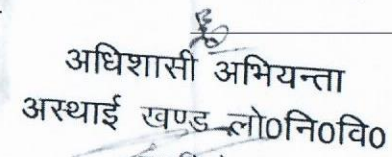 अधिशासी अभियन्ता
अस्थाई खण्ड लो०नि०वि०